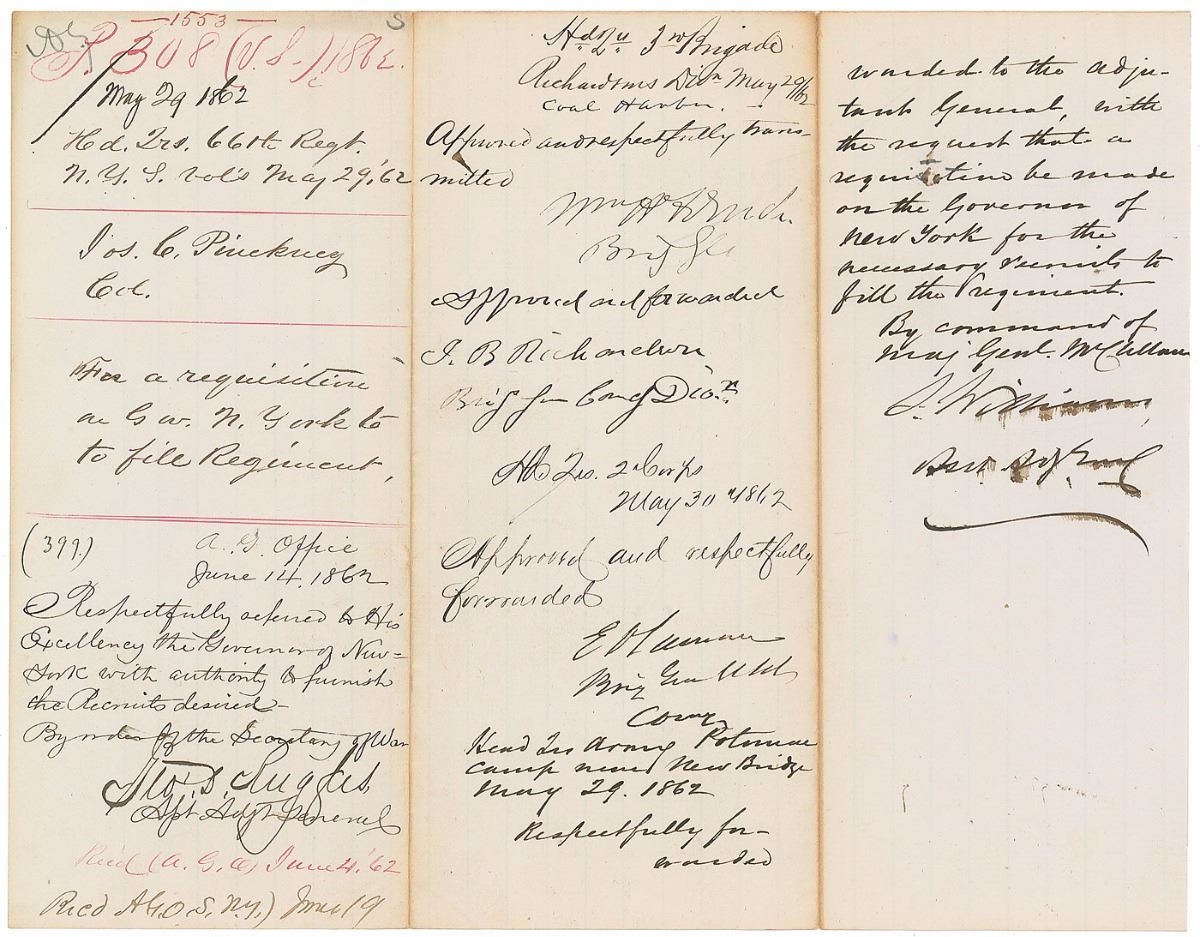 1553
P. 308 (V.S.) 1862.
May 29 1862
Hd. Qrs. 66th Regt.
N.Y.S. vol's May 29, '62
Jos. C. Pinckney
Col.
For a requisition
on Gov. N. York to
to fill Regiment,
(399.)
A. G. Office
June 14. 1862
Respectfully referred to His
Excellency the Governor of New-
York with authority to furnish
the Recruits desired—
By order of the Secretary of War
Geo. D. Ruggles
Asst Adjt General
Rec'd (A. G. O.) June 4, '62
Rec'd A.G.O. S. N.Y.) June 19
Hd Qu 3rd Brigade
Richardsons Divn May 29/62
Coal Harbor.
Approved and respectfully trans-
mitted
Wm H French
Brig Gen
Approved and forwarded
I. B. Richardson
Brig Gen Comg Divn.
Hd Qrs. 2d Corps
May 30 1862
Approved and respectfully
forwarded
E V Sumner
Brig Gen USA
Comg
Head Qrs Army Potomac
Camp near New Bridge
May 29. 1862
Respectfully for-
warded
warded to the Adju-
tant General, with
the request that a
requisition be made
on the Governor of
New York for the
necessary recruits to
fill the regiment.
By command of
Maj Genl. McClellan
S. Williams,
Asst Adj. Genl